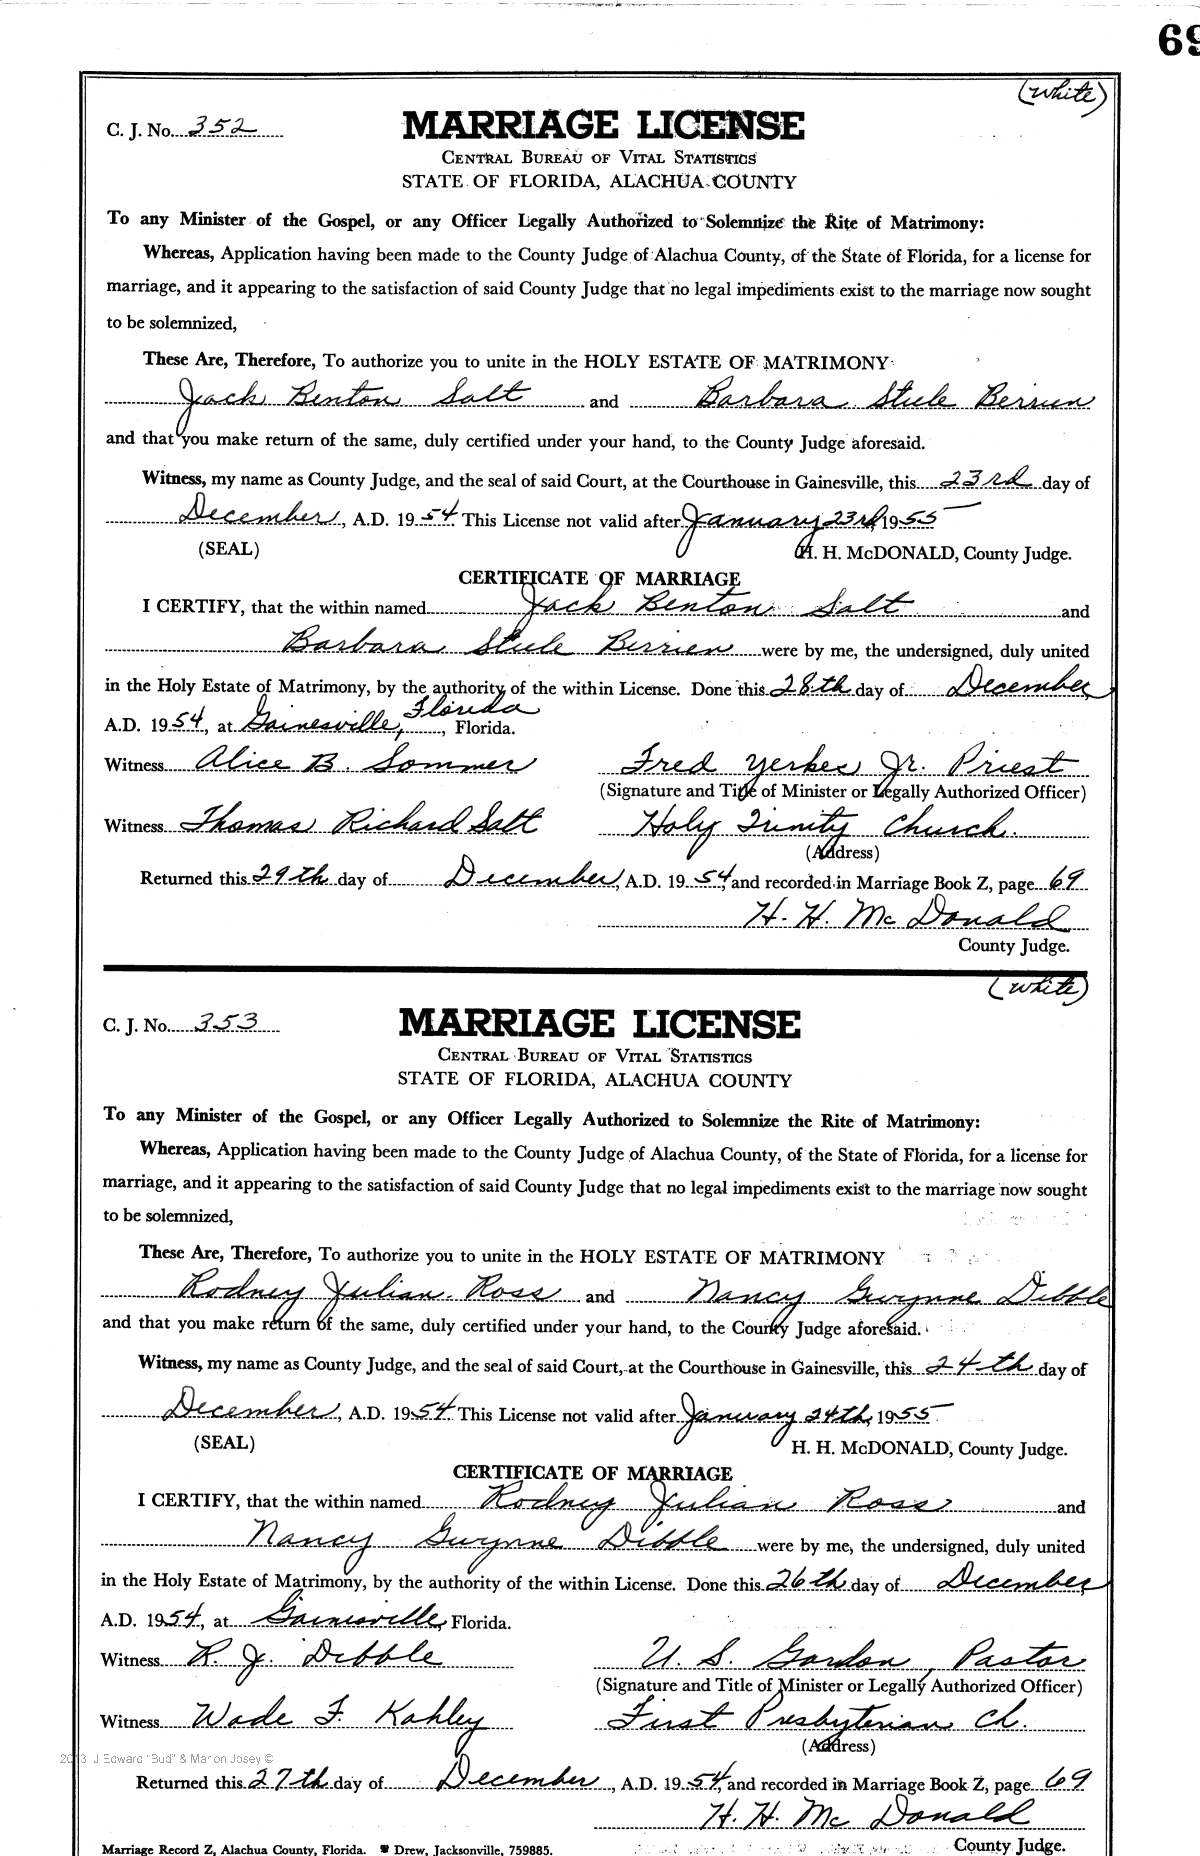 69
(White)
C. J. No. 352
MARRIAGE LICENSE
CENTRAL BUREAU OF VITAL STATISTICS
STATE OF FLORIDA, ALACHUA COUNTY
To any Minister of the Gospel, or any Officer Legally Authorized to Solemnize the Rite of Matrimony:
Whereas, Application having been made to the County Judge of Alachua County, of the State of Florida, for a license for
marriage, and it appearing to the satisfaction of said County Judge that no legal impediments exist to the marriage now sought
to be solemnized,
These Are, Therefore, To authorize you to unite in the HOLY ESTATE OF MATRIMONY
Jack Benton Salt and Barbara Steele Berrien
and that you make return of the same, duly certified under your hand, to the County Judge aforesaid.
Witness, my name as County Judge, and the seal of said Court, at the Courthouse in Gainesville, this 23rd day of
December, A.D. 1954. This License not valid after January 23rd, 1955
(SEAL) H. H. McDONALD, County Judge.
CERTIFICATE OF MARRIAGE
I CERTIFY, that the within named Jack Benton Salt and
Barbara Steele Berrien were by me, the undersigned, duly united
in the Holy Estate of Matrimony, by the authority of the within License. Done this 28th day of December,
A.D. 1954, at Gainesville, Florida, Florida.
Witness Alice B. Sommer Fred Yerkes Jr. Priest
(Signature and Title of Minister or Legally Authorized Officer)
Witness Thomas Richard Salt Holy Trinity Church.
(Address)
Returned this 29th day of December, A.D. 1954, and recorded in Marriage Book Z, page 69
H. H. McDonald
County Judge.
(White)
C. J. No. 353
MARRIAGE LICENSE
CENTRAL BUREAU OF VITAL STATISTICS
STATE OF FLORIDA, ALACHUA COUNTY
To any Minister of the Gospel, or any Officer Legally Authorized to Solemnize the Rite of Matrimony:
Whereas, Application having been made to the County Judge of Alachua County, of the State of Florida, for a license for
marriage, and it appearing to the satisfaction of said County Judge that no legal impediments exist to the marriage now sought
to be solemnized,
These Are, Therefore, To authorize you to unite in the HOLY ESTATE OF MATRIMONY
Rodney Julian Ross and Nancy Gwynne Dibble
and that you make return of the same, duly certified under your hand, to the County Judge aforesaid.
Witness, my name as County Judge, and the seal of said Court, at the Courthouse in Gainesville, this 24th day of
December, A.D. 1954. This License not valid after January 24th, 1955
(SEAL) H. H. McDONALD, County Judge.
CERTIFICATE OF MARRIAGE
I CERTIFY, that the within named Rodney Julian Ross and
Nancy Gwynne Dibble were by me, the undersigned, duly united
in the Holy Estate of Matrimony, by the authority of the within License. Done this 26th day of December,
A.D. 1954, at Gainesville, Florida.
Witness R. J. Dibble U. S. Gordon, Pastor
(Signature and Title of Minister or Legally Authorized Officer)
Witness Wade F. Kahley First Presbyterian Ch.
(Address)
2013 J Edward "Bud" & Marion Josey ©
Returned this 27th day of December, A.D. 1954, and recorded in Marriage Book Z, page 69
H. H. McDonald
County Judge.
Marriage Record Z, Alachua County, Florida. Drew, Jacksonville, 759885.